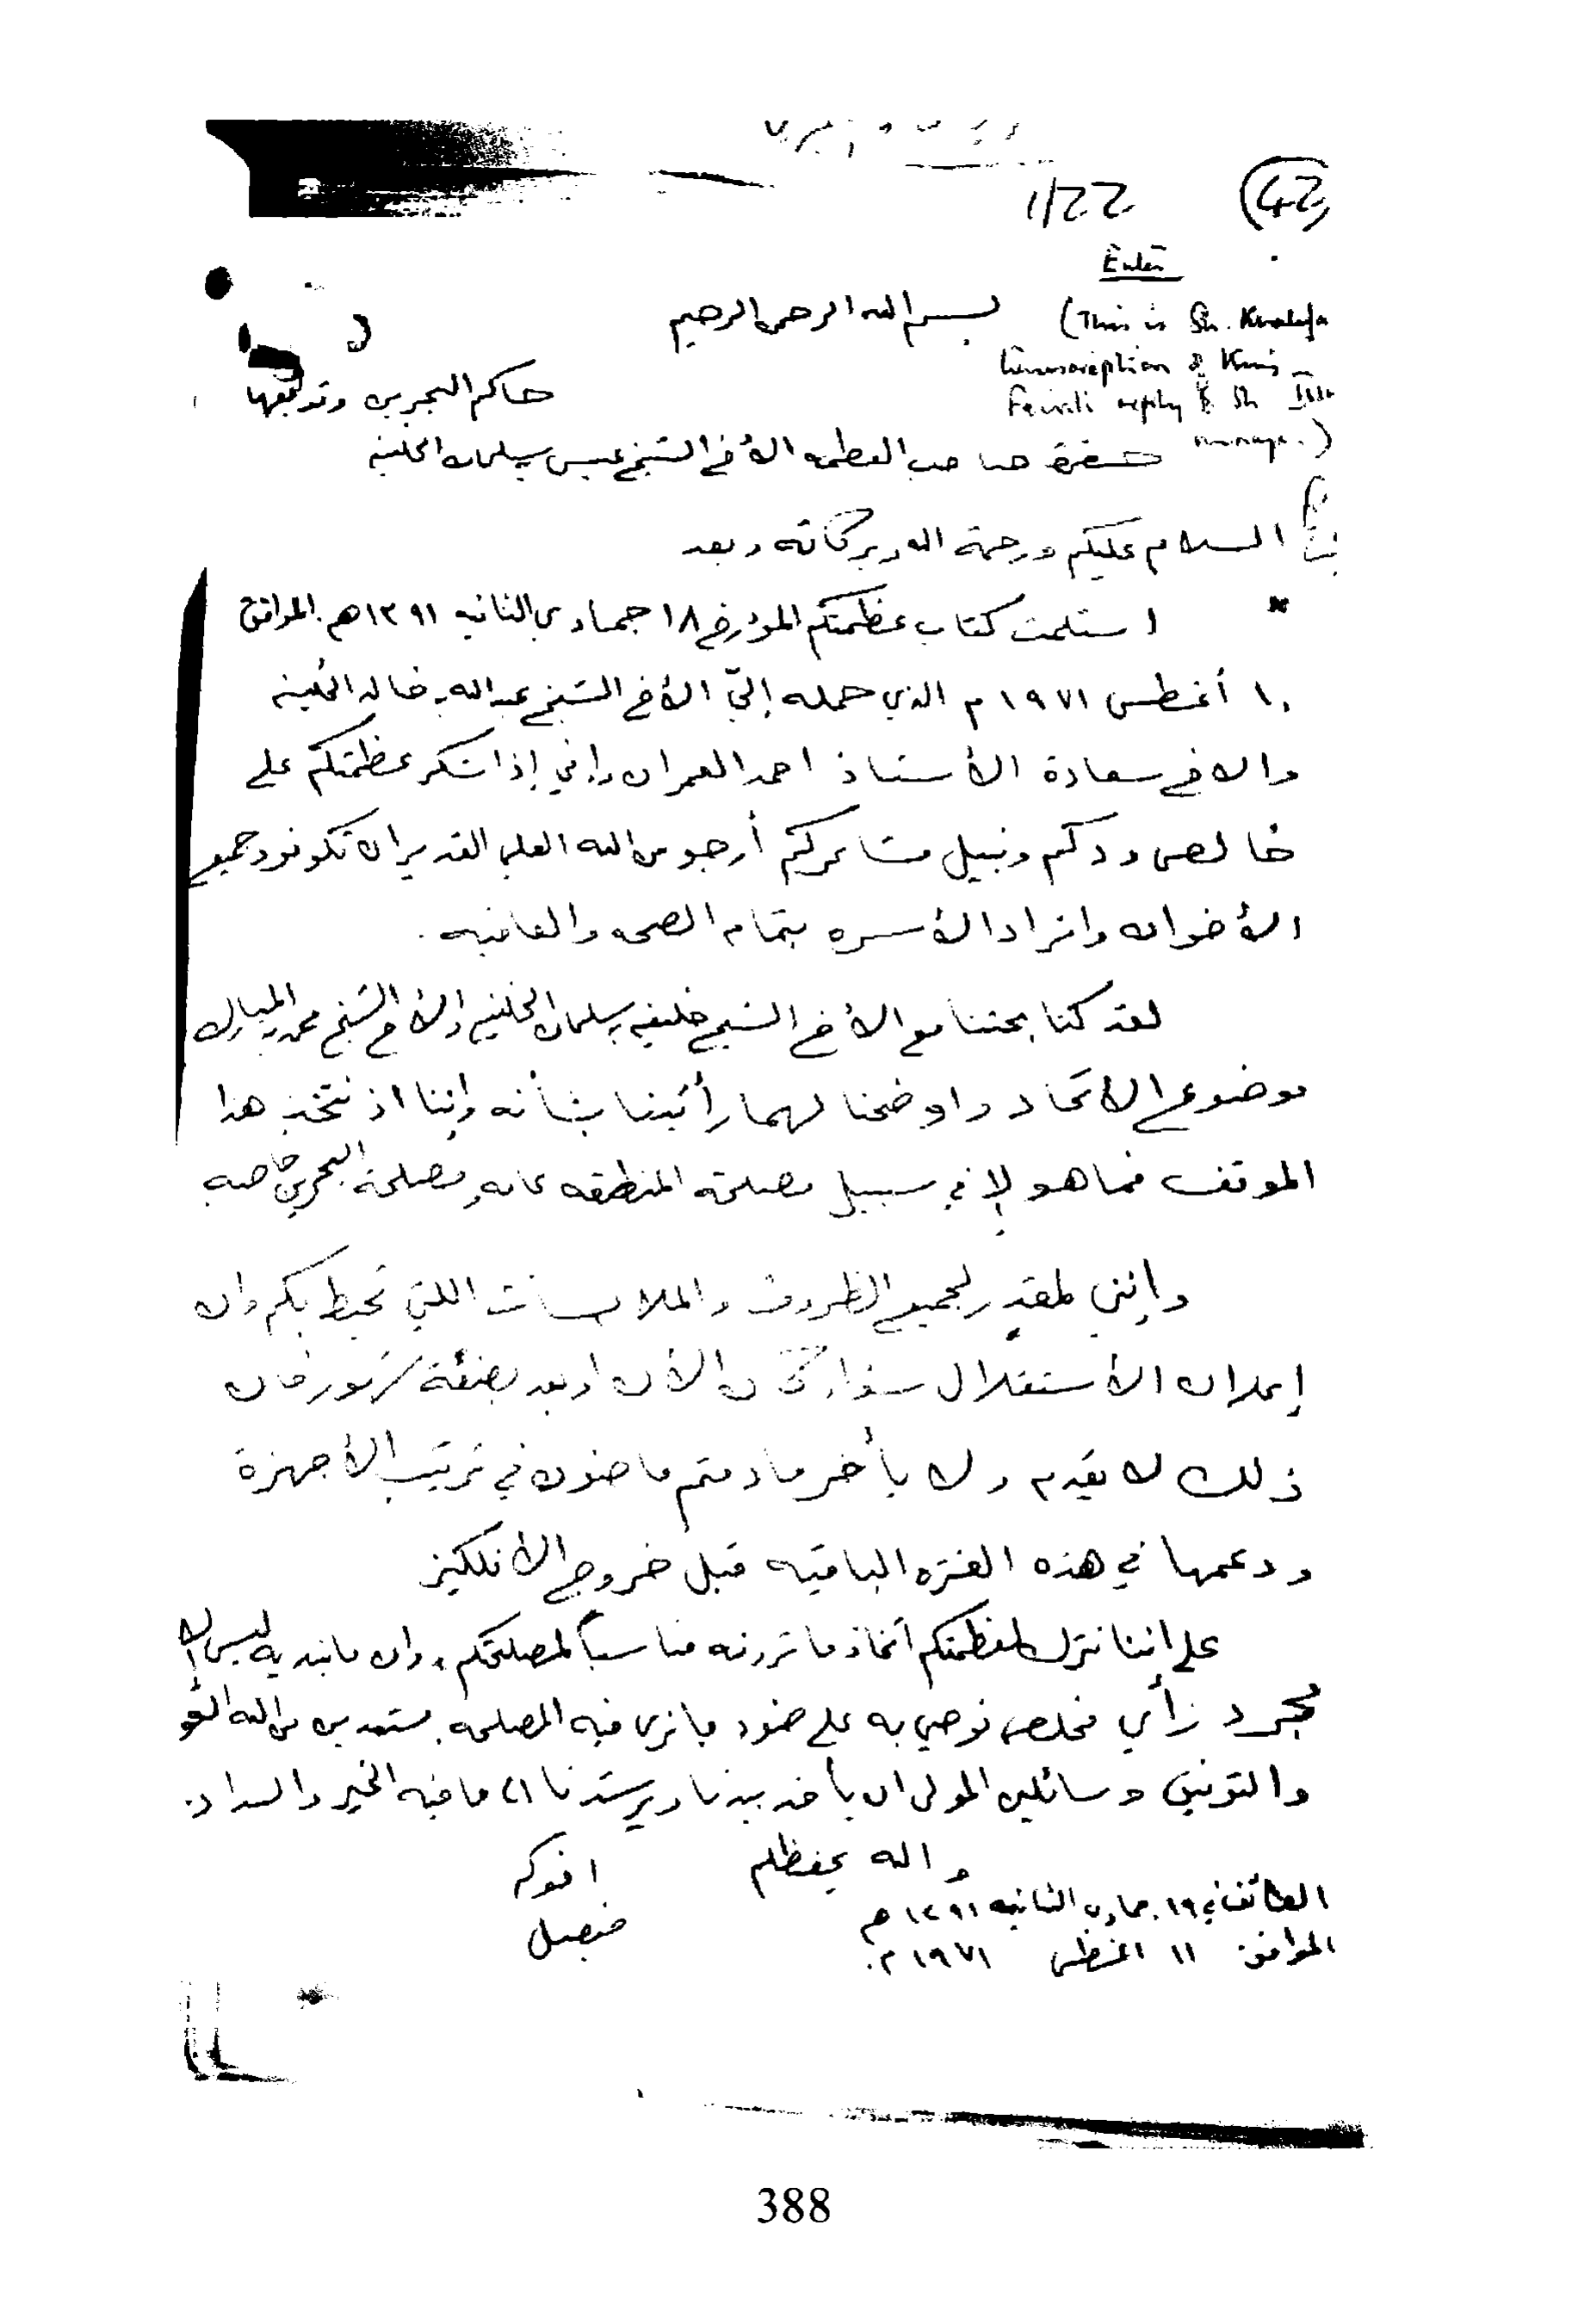 1/22
42
Enter
(This is Sh. Khalifa
transcription of King
Feisal's reply to Sh Isa
message.)
بسم الله الرحمن الرحيم
حاكم البحرين وتوابعها
حضرة صاحب العظمه الأخ الشيخ عيسى بن سلمان الخليفه
السلام عليكم ورحمة الله وبركاته وبعد
استلمت كتاب عظمتكم المؤرخ ١٨ جمادى الثانيه ١٣٩١هـ الموافق
١٠ أغسطس ١٩٧١م الذي حمله إليّ الأخ الشيخ عبدالله بن خالد الخليفه
والاخ سعادة الأستاذ احمد العمران وإني إذ اشكر عظمتكم على
خالص ودكم ونبيل مشاعركم أرجو من الله العلي القدير ان تكونو وجميع
الأخوان وافراد الأسره بتمام الصحه والعافيه.
لقد كنا بحثنا مع الأخ الشيخ خليفه بن سلمان الخليفه والأخ الشيخ محمد بن مبارك
موضوع الاتحاد واوضحنا لهما رأينا بشأنه وإننا اذ نتخذ هذا
الموقف فما هو إلا في سبيل مصلحة المنطقه عامه ومصلحة البحرين خاصه
وإنني لمقدر لجميع الظروف والملابسات اللتي تحيط بكم وان
إعلان الأستقلال سواء كان الأن او بعد بضعة شهور فان
ذلك لا يقدم ولا يأخر مادمتم ماضون في ترتيب الأجهزة
ودعمها في هذه الفتره الباقيه قبل خروج الأنكليز
على اننا نترك لعظمتكم اتخاذ ما ترونه مناسباً لمصلحتكم، وان مانبديه ليس إلا
مجرد رأي مخلص نوصي به على ضوء ما نرى فيه المصلحه. مستمدين من الله العو
والتوفيق وسائلين المولى ان يأخذ بيدنا ويرشدنا الى مافيه الخير والسداد.
والله يحفظكم
اخوكم
فيصل
الطائف في ١٩ جمادى الثانيه ١٣٩١هـ
الموافق ١١ اغسطس ١٩٧١م.
388